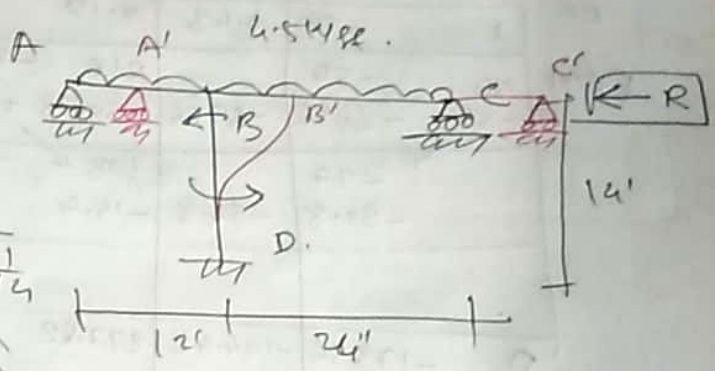 A A' 4.5k/ft. C'
B B' C R
14'
D.
1/4
12' 24'